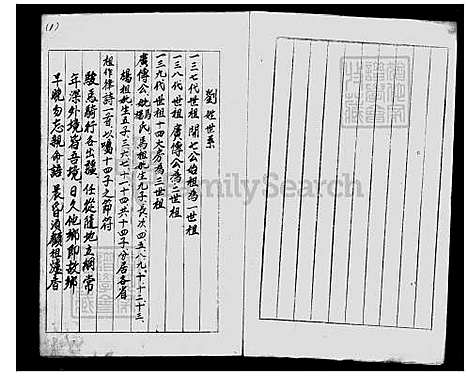 (1)
劉姓世系
一三七代世祖開七公始祖為一世祖
一三八代世祖廣傳公為二世祖
一三九代世祖十四大房為三世祖
廣傳公妣馬楊氏馬祖妣生九子長、次、四、五、八、九、十、十二、十三、
楊祖妣生五子三、六、七、十一、十四共十四子、分居各省
祖作律詩一首以囑十四子之節符
駿馬騎行各出疆 任從隨地立綱常
年深外境皆吾境 日久他鄉即故鄉
早晚勿忘親命語 晨昏須顧祖爐香
FamilySearch